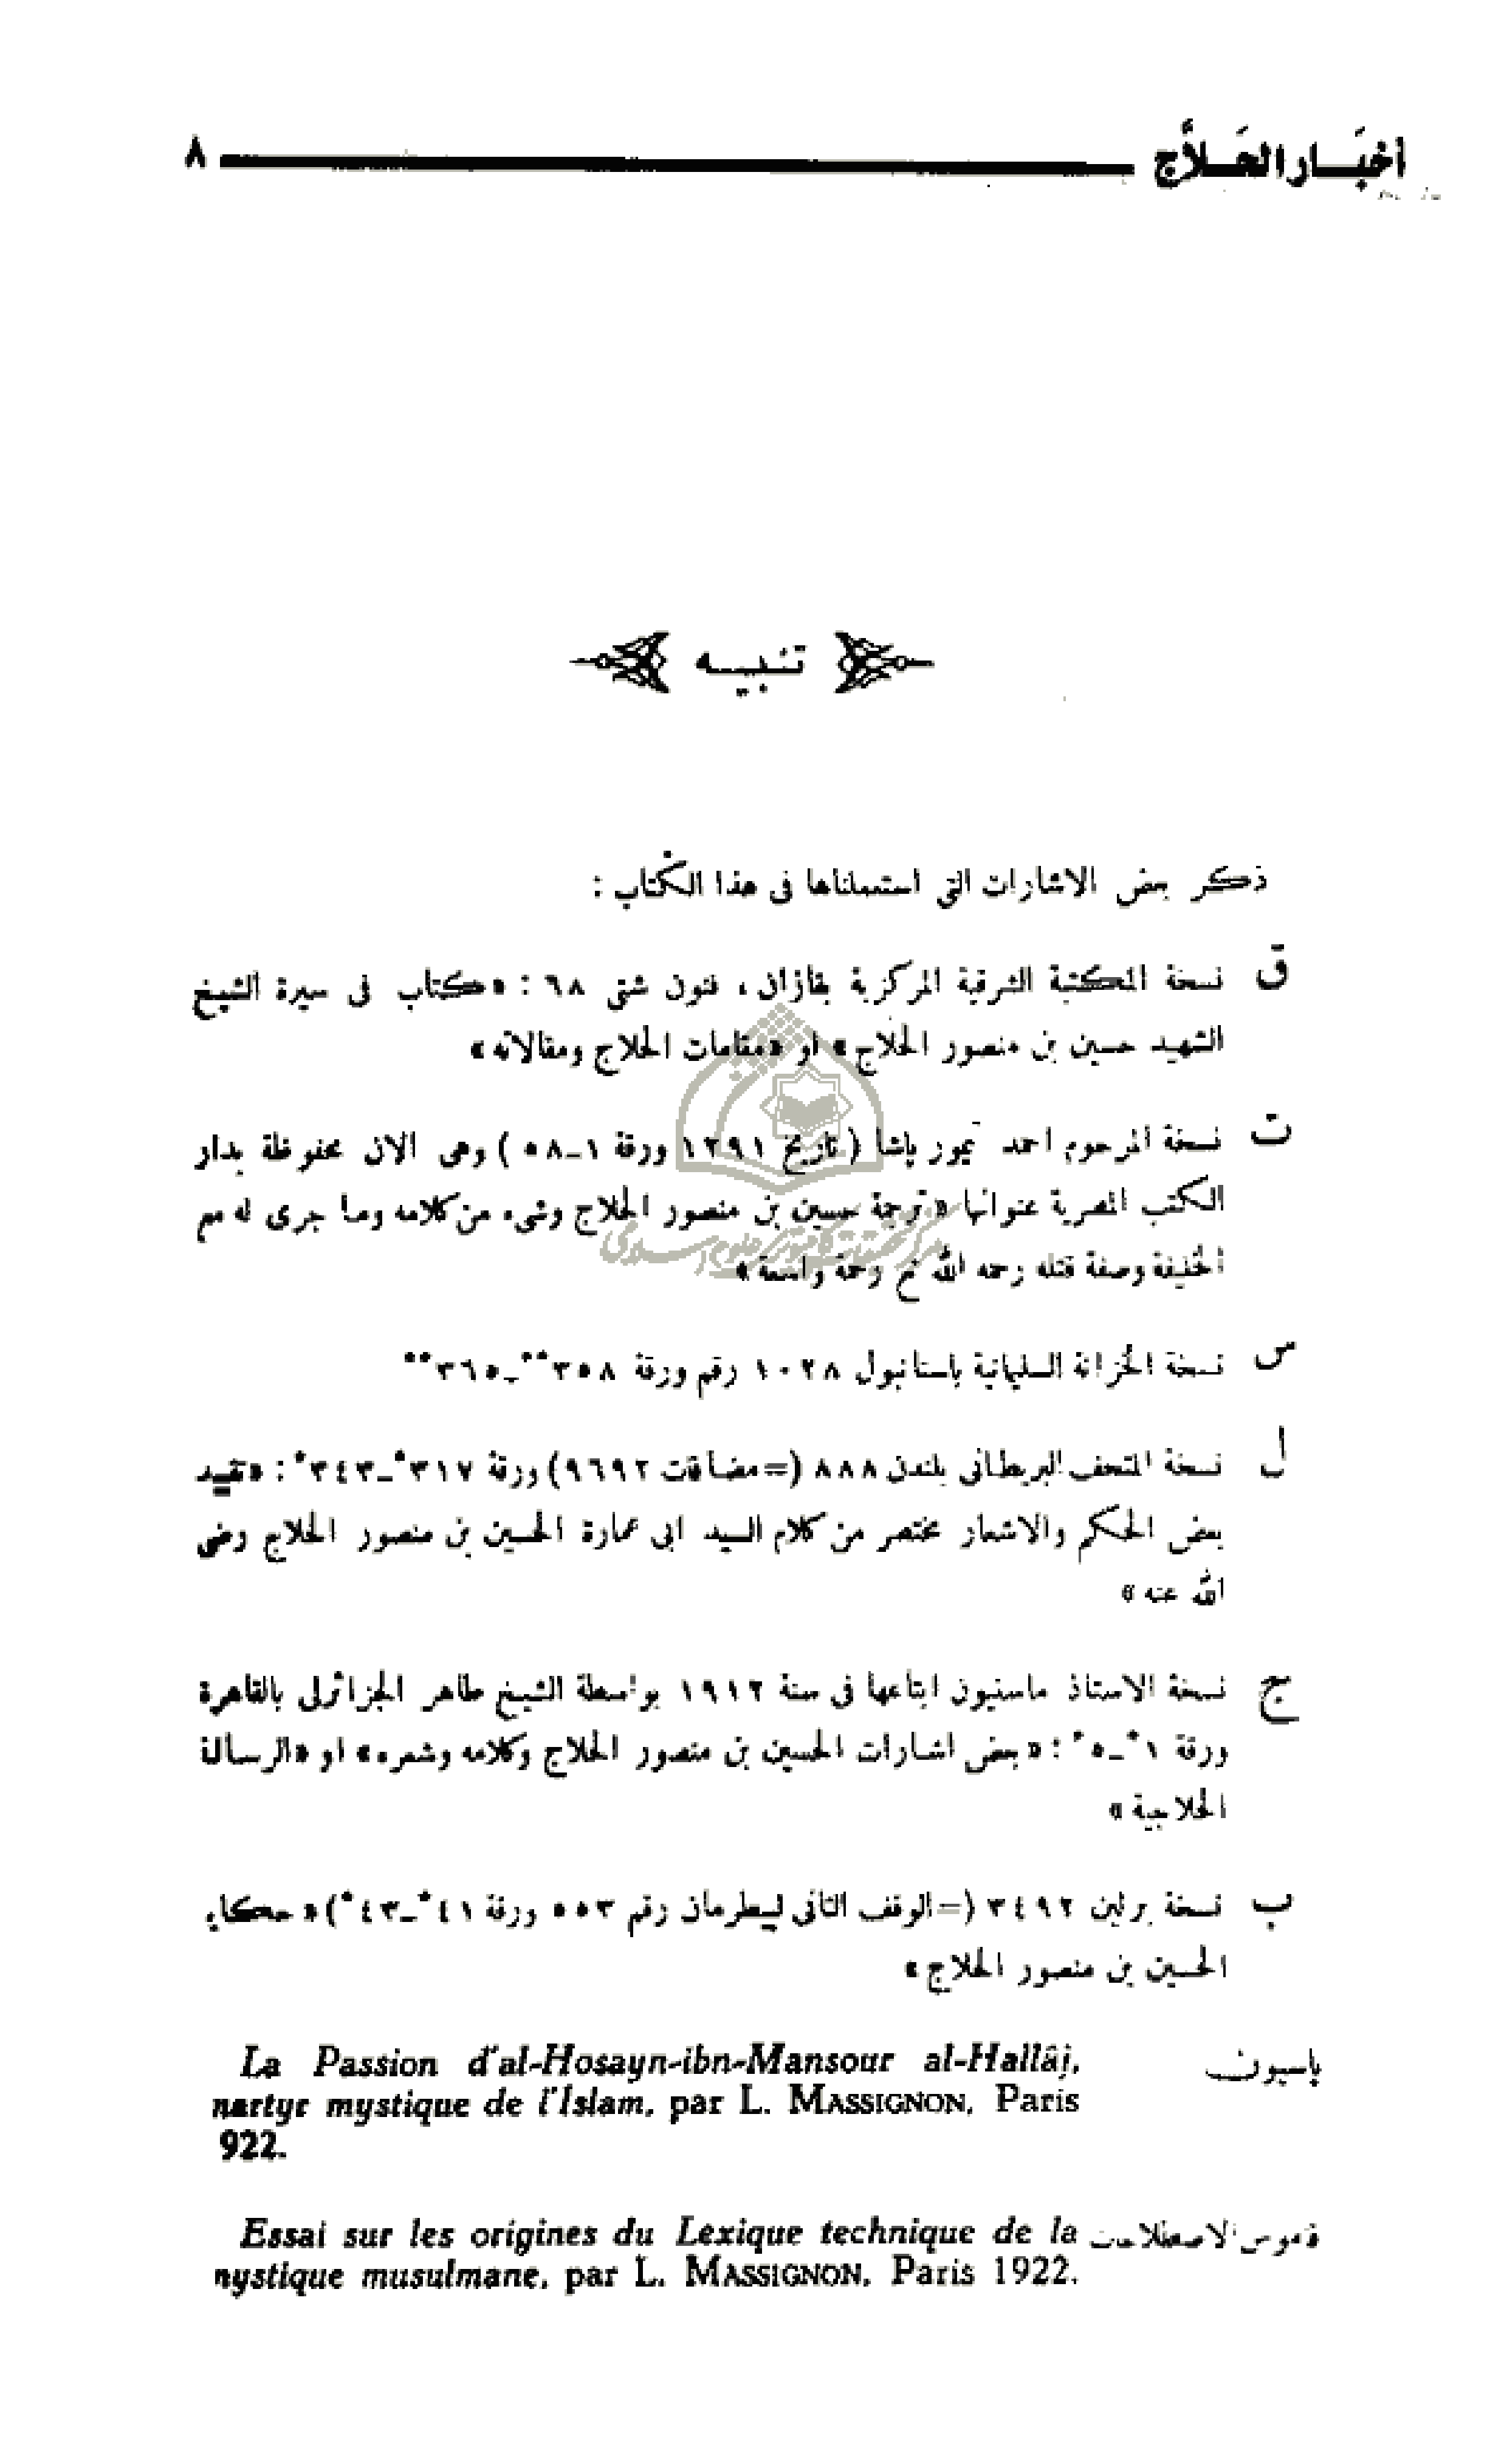 أخبَـار الحَـلاَّج ٨
تنبيه
ذكر بعض الاشارات التى استعملناها فى هذا الكتاب :
ق نسخة المكتبة الشرقية المركزية بقازان ، فنون شتى ٦٨ : «كتاب فى سيرة الشيخ
الشهيد حسين بن منصور الحلاج» او «مقامات الحلاج ومقالاته»
ت نسخة المرحوم احمد تيمور باشا ( تاريخ ١٢٩١ ورقة ١ـ٥٨ ) وهى الان محفوظة بدار
الكتب المصرية عنوانها «ترجمة حسين بن منصور الحلاج وشىء من كلامه وما جرى له مع
الخليفة وصفة قتله رحمه الله تع رحمة واسعة»
س نسخة الخزانة السليمانية باستانبول ١٠٢٨ رقم ورقة ٣٥٨**ـ٣٦٥**
ل نسخة المتحف البريطانى بلندن ٨٨٨ (=مضافات ٩٦٩٢) ورقة ٣١٧*ـ٣٤٣* : «تقييد
بعض الحكم والاشعار مختصر من كلام السيد ابى عمارة الحسين بن منصور الحلاج رضى
الله عنه»
ج نسخة الاستاذ ماسنيون ابتاعها فى سنة ١٩١٢ بواسطة الشيخ طاهر الجزائرلى بالقاهرة
ورقة ١*ـ٥* : «بعض اشارات الحسين بن منصور الحلاج وكلامه وشعره» او «الرسالة
الحلاجية»
ب نسخة برلين ٣٤٩٢ (=الوقف الثانى ليطرمان رقم ٥٥٣ ورقة ٤١*ـ٤٣*) «حكاية
الحسين بن منصور الحلاج»
باسيون La Passion d'al-Hosayn-ibn-Mansour al-Hallâj,
martyr mystique de l'Islam, par L. MASSIGNON, Paris
922.
قاموس الاصطلاحات Essai sur les origines du Lexique technique de la
mystique musulmane, par L. MASSIGNON, Paris 1922.